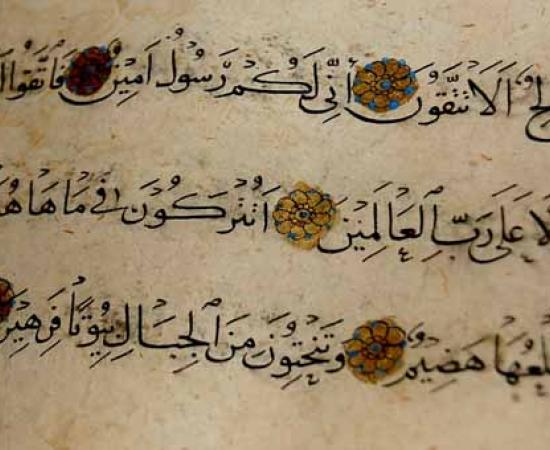 لح أَلَا تَتَّقُونَ إِنِّي لَكُمْ رَسُولٌ أَمِينٌ فَاتَّقُوا ال
لَا عَلَى رَبِّ الْعَالَمِينَ أَتُتْرَكُونَ فِي مَا هَاهُ
لْعُهَا هَضِيمٌ وَتَنْحِتُونَ مِنَ الْجِبَالِ بُيُوتًا فَرِهِينَ